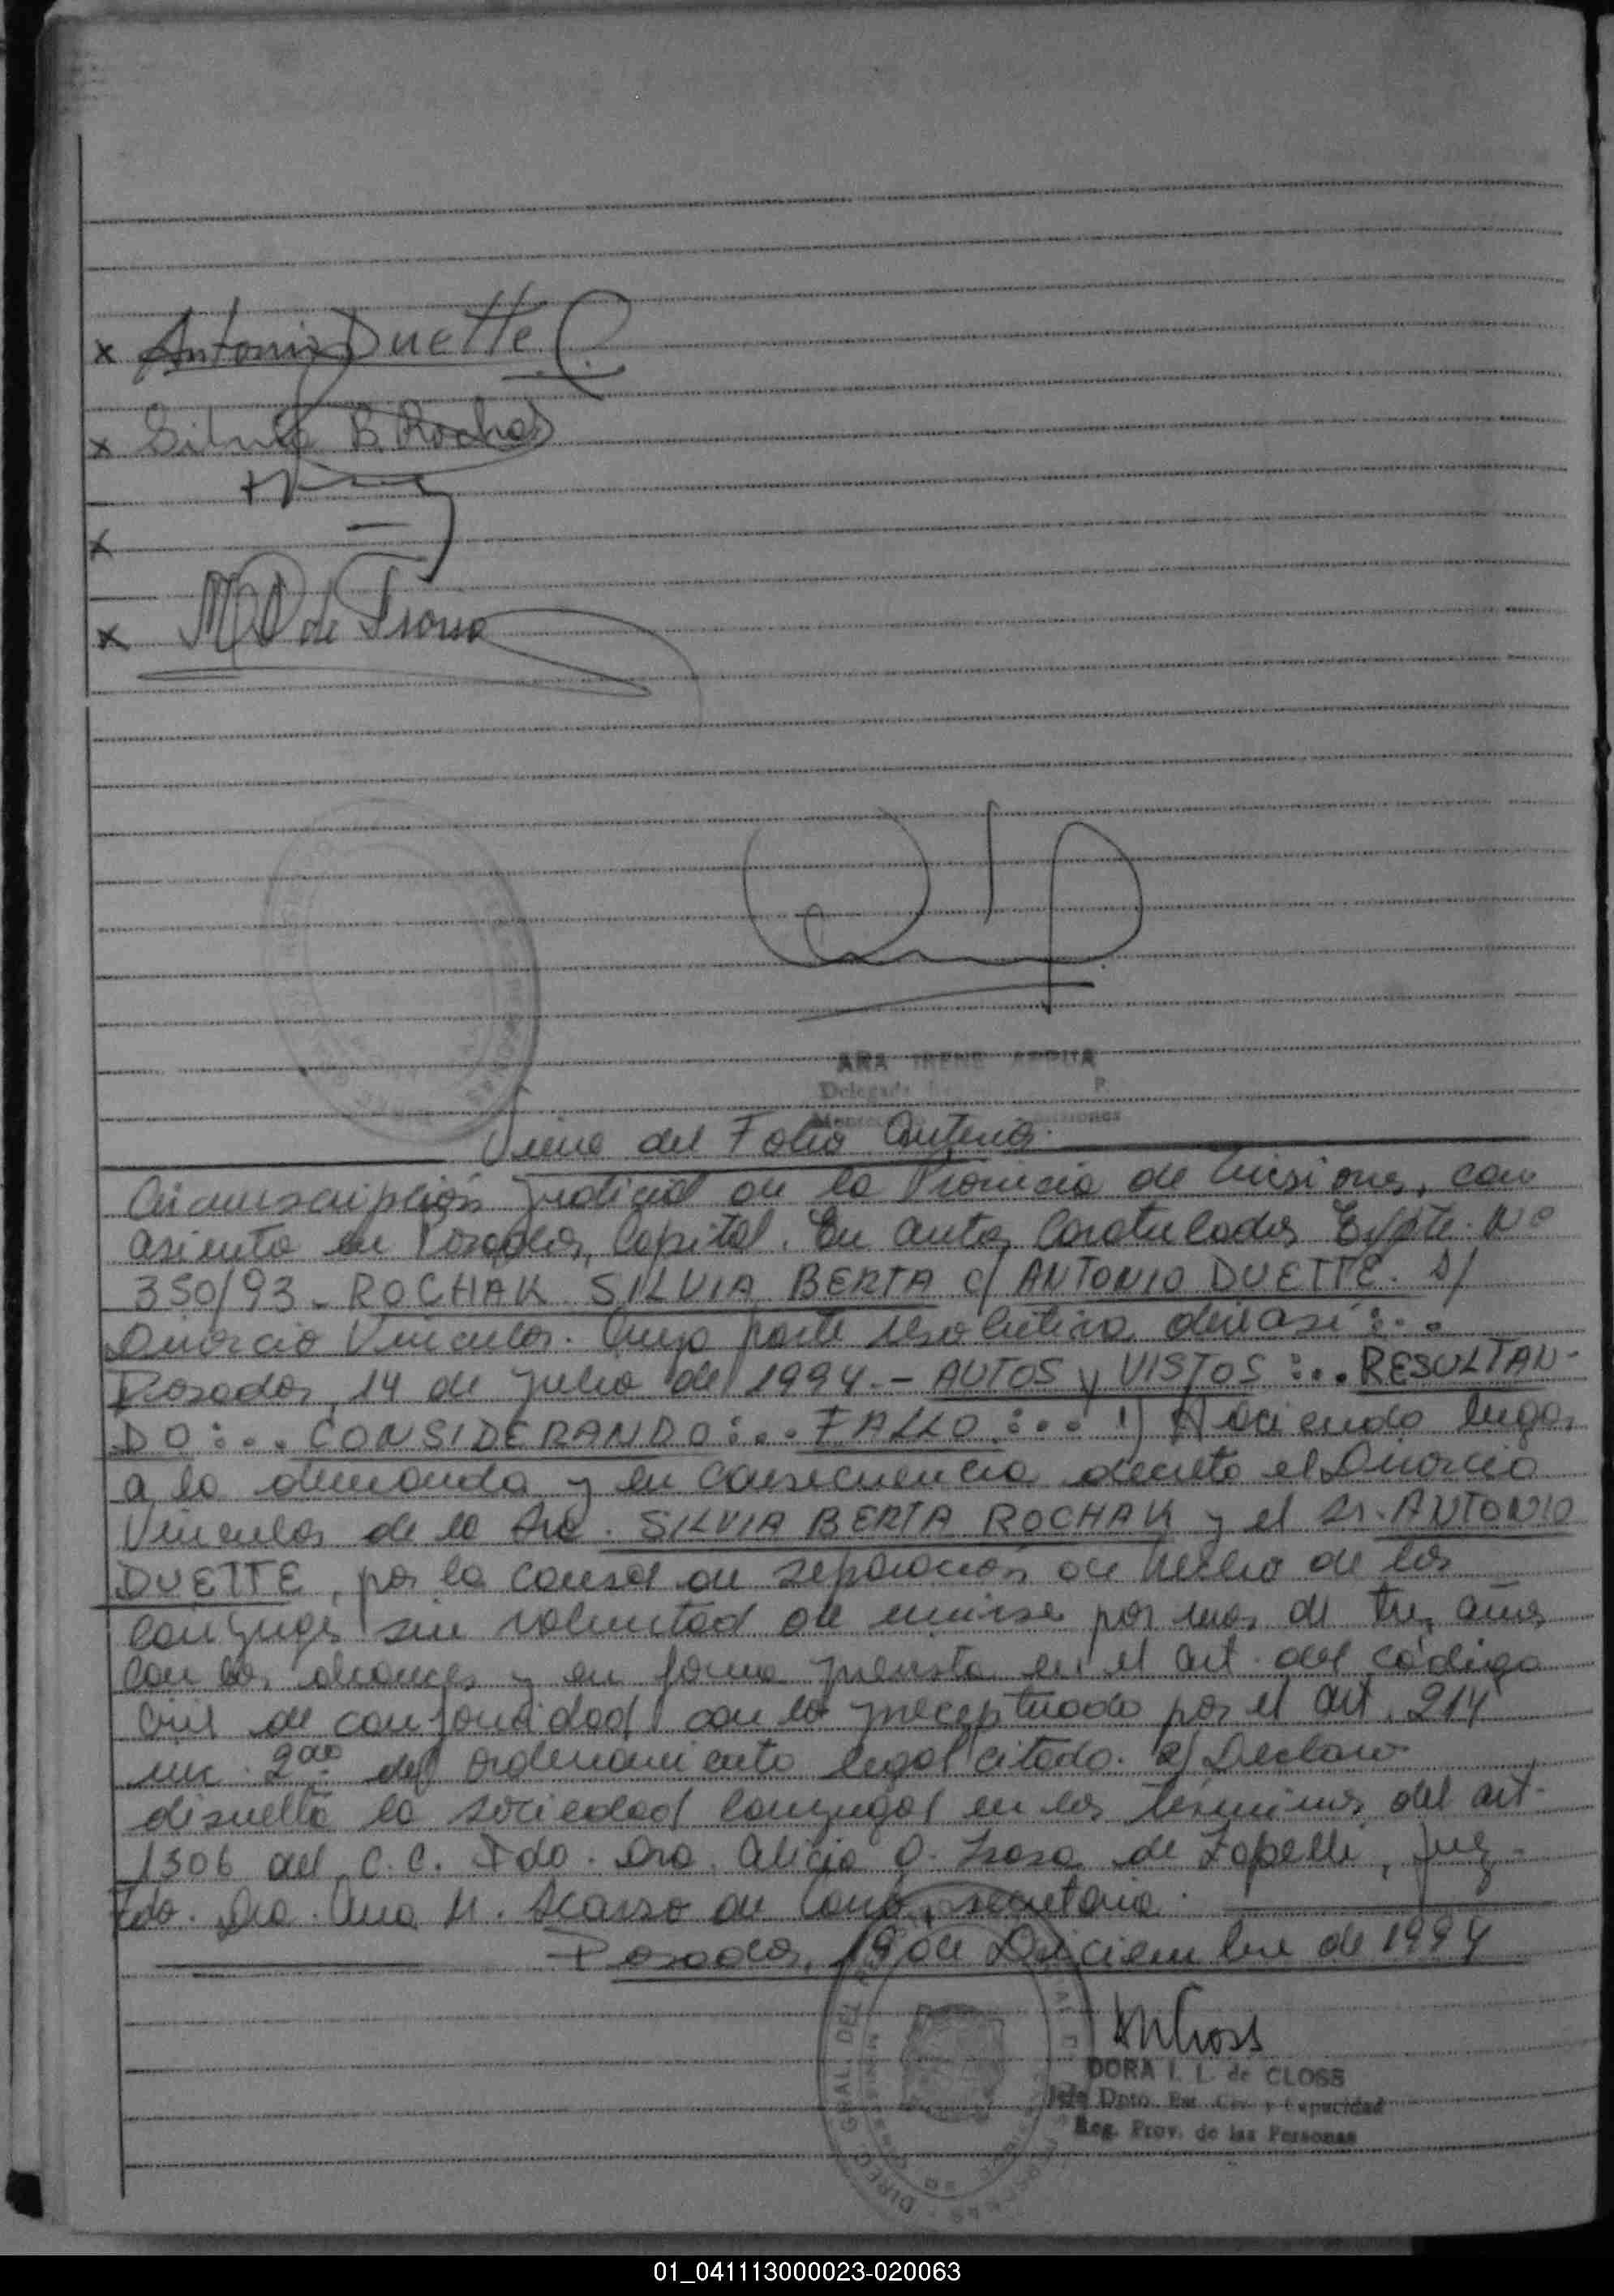 x Antonio Duette
x Silvia B. Rochak
x
x M de
ARA IRENE
Delegada
Viene del Folio Anterior.
Circunscripción Judicial de la Provincia de Misiones, con
asiento en Posadas, Capital. En autos Caratulados Expte. Nº
350/93 - ROCHAK SILVIA BERTA c/ ANTONIO DUETTE. S/
Divorcio Vincular. Cuya parte resolutiva dice así:...
Posadas, 14 de Julio de 1994.- AUTOS y VISTOS:... RESULTAN-
DO:... CONSIDERANDO:... FALLO:... 1) Haciendo lugar
a la demanda y en consecuencia decreto el Divorcio
Vincular de la Sra. SILVIA BERTA ROCHAK y el Sr. ANTONIO
DUETTE, por la causal de separación de hecho de los
cónyuges sin voluntad de unirse por mas de tres años
con los alcances y en forma prevista en el art. del código
Civil de conformidad con lo preceptuado por el art. 214
inc. 2do del ordenamiento legal citado. 2) Declaro
disuelta la sociedad conyugal en los términos del art.
1306 del C.C. Fdo. Dra. Alicia O. de Zapelli, Juez-
Fdo. Dra. Ana M. de Cano, secretaria.
Posadas, 19 de Diciembre de 1994
DORA I. L. de CLOSS
Jefe Dpto. Est. Civ. y Capacidad
Reg. Prov. de las Personas
DIREC. GRAL. DEL
01_041113000023-020063